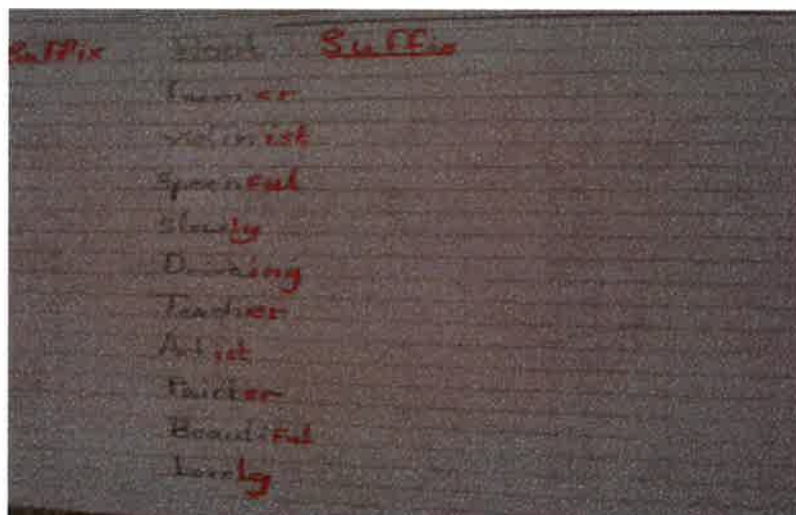 Suffix Root Suffix
Farmer
violinist
spoonful
slowly
Teacher
Artist
Beautiful
Lovely